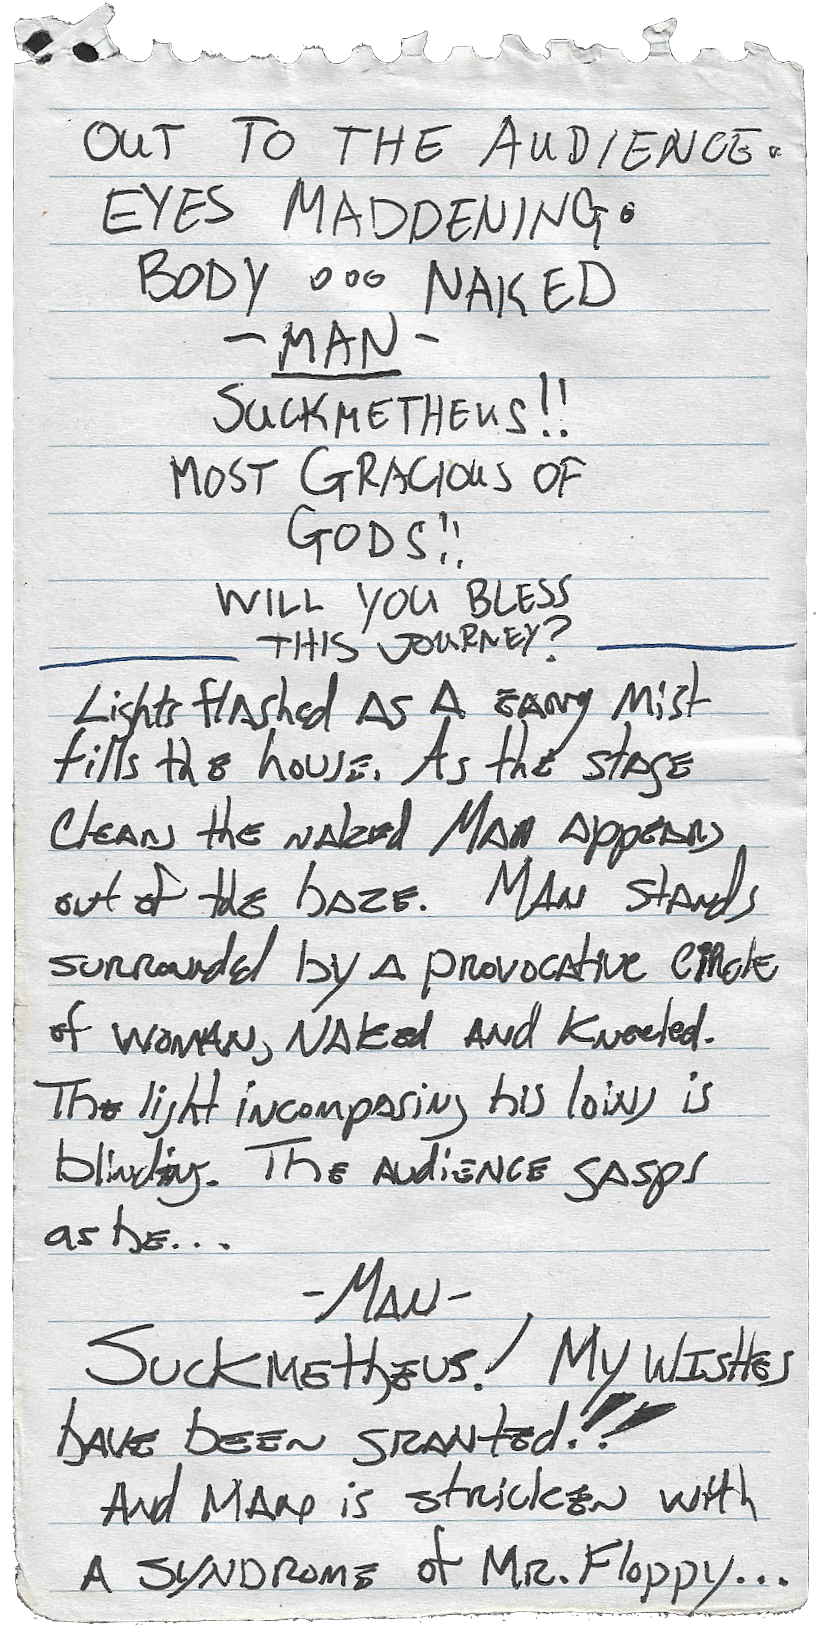 OUT TO THE AUDIENCE.
EYES MADDENING.
BODY ... NAKED
- MAN -
SUCKMETHEUS!!
MOST GRACIOUS OF
GODS!!
WILL YOU BLESS
THIS JOURNEY?
Lights flashed as a mist
fills the house. As the stage
clears the naked Man appears
out of the haze. Man stands
surrounded by a provocative circle
of woman, naked and kneeled.
The light incomparing his loins is
blinding. The audience gasps
as he...
- MAN -
Suckmetheus! My wishes
have been granted!!
And Man is stricken with
a syndrome of Mr. Floppy...